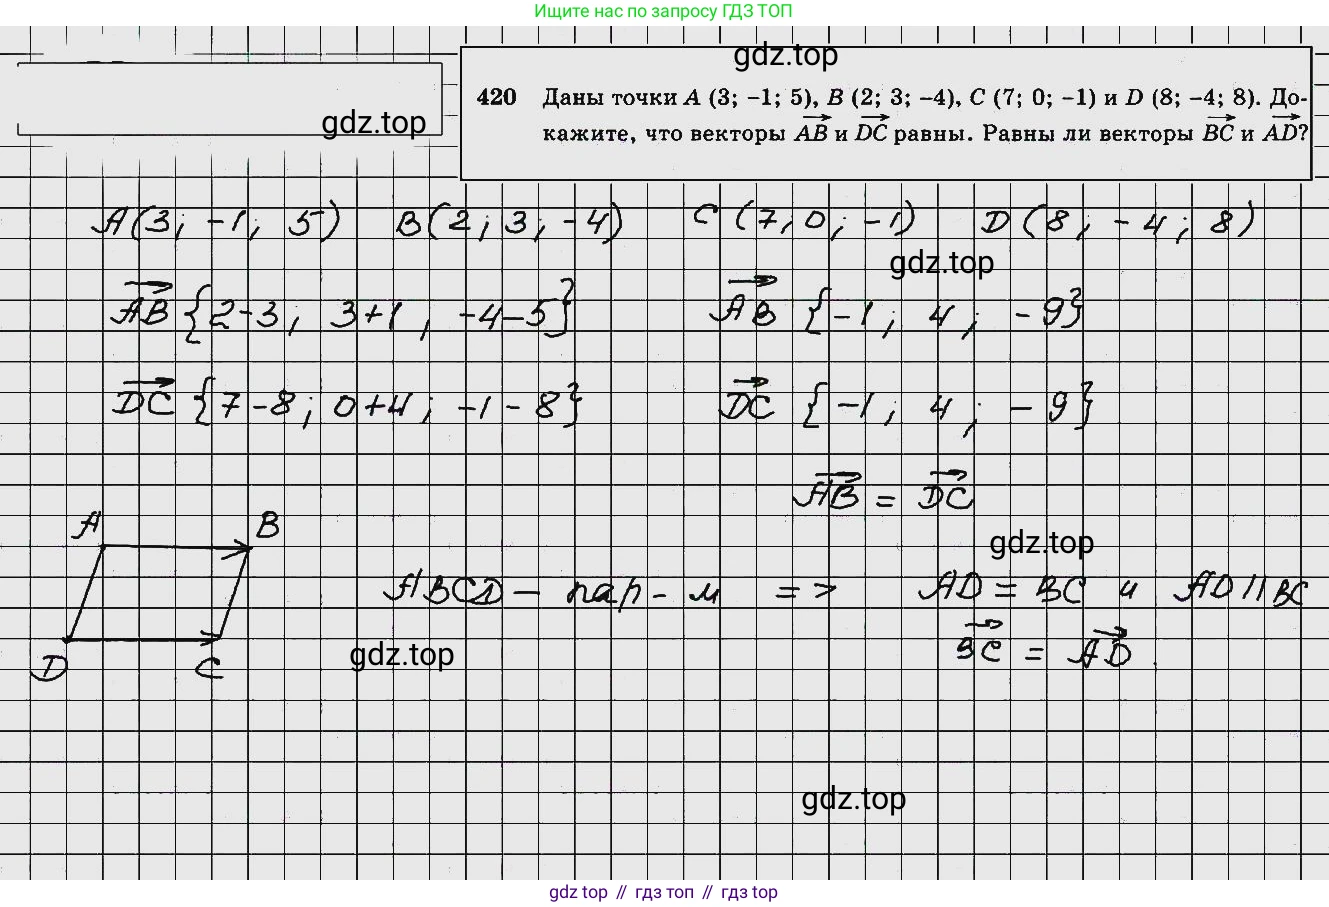 Ищите нас по запросу ГДЗ ТОП
gdz.top
420 Даны точки A (3; −1; 5), B (2; 3; −4), C (7; 0; −1) и D (8; −4; 8). До-
кажите, что векторы AB и DC равны. Равны ли векторы BC и AD?
gdz.top
A(3; -1; 5) B(2; 3; -4) C (7, 0; -1) D (8; -4; 8)
gdz.top
AB {2-3; 3+1; -4-5} AB {-1; 4; -9}
DC {7-8; 0+4; -1-8} DC {-1; 4; -9}
AB = DC
A B
gdz.top
ABCD - пар-м => AD = BC и AD || BC
BC = AD
gdz.top
D C
gdz.top
gdz top // гдз топ // gdz top